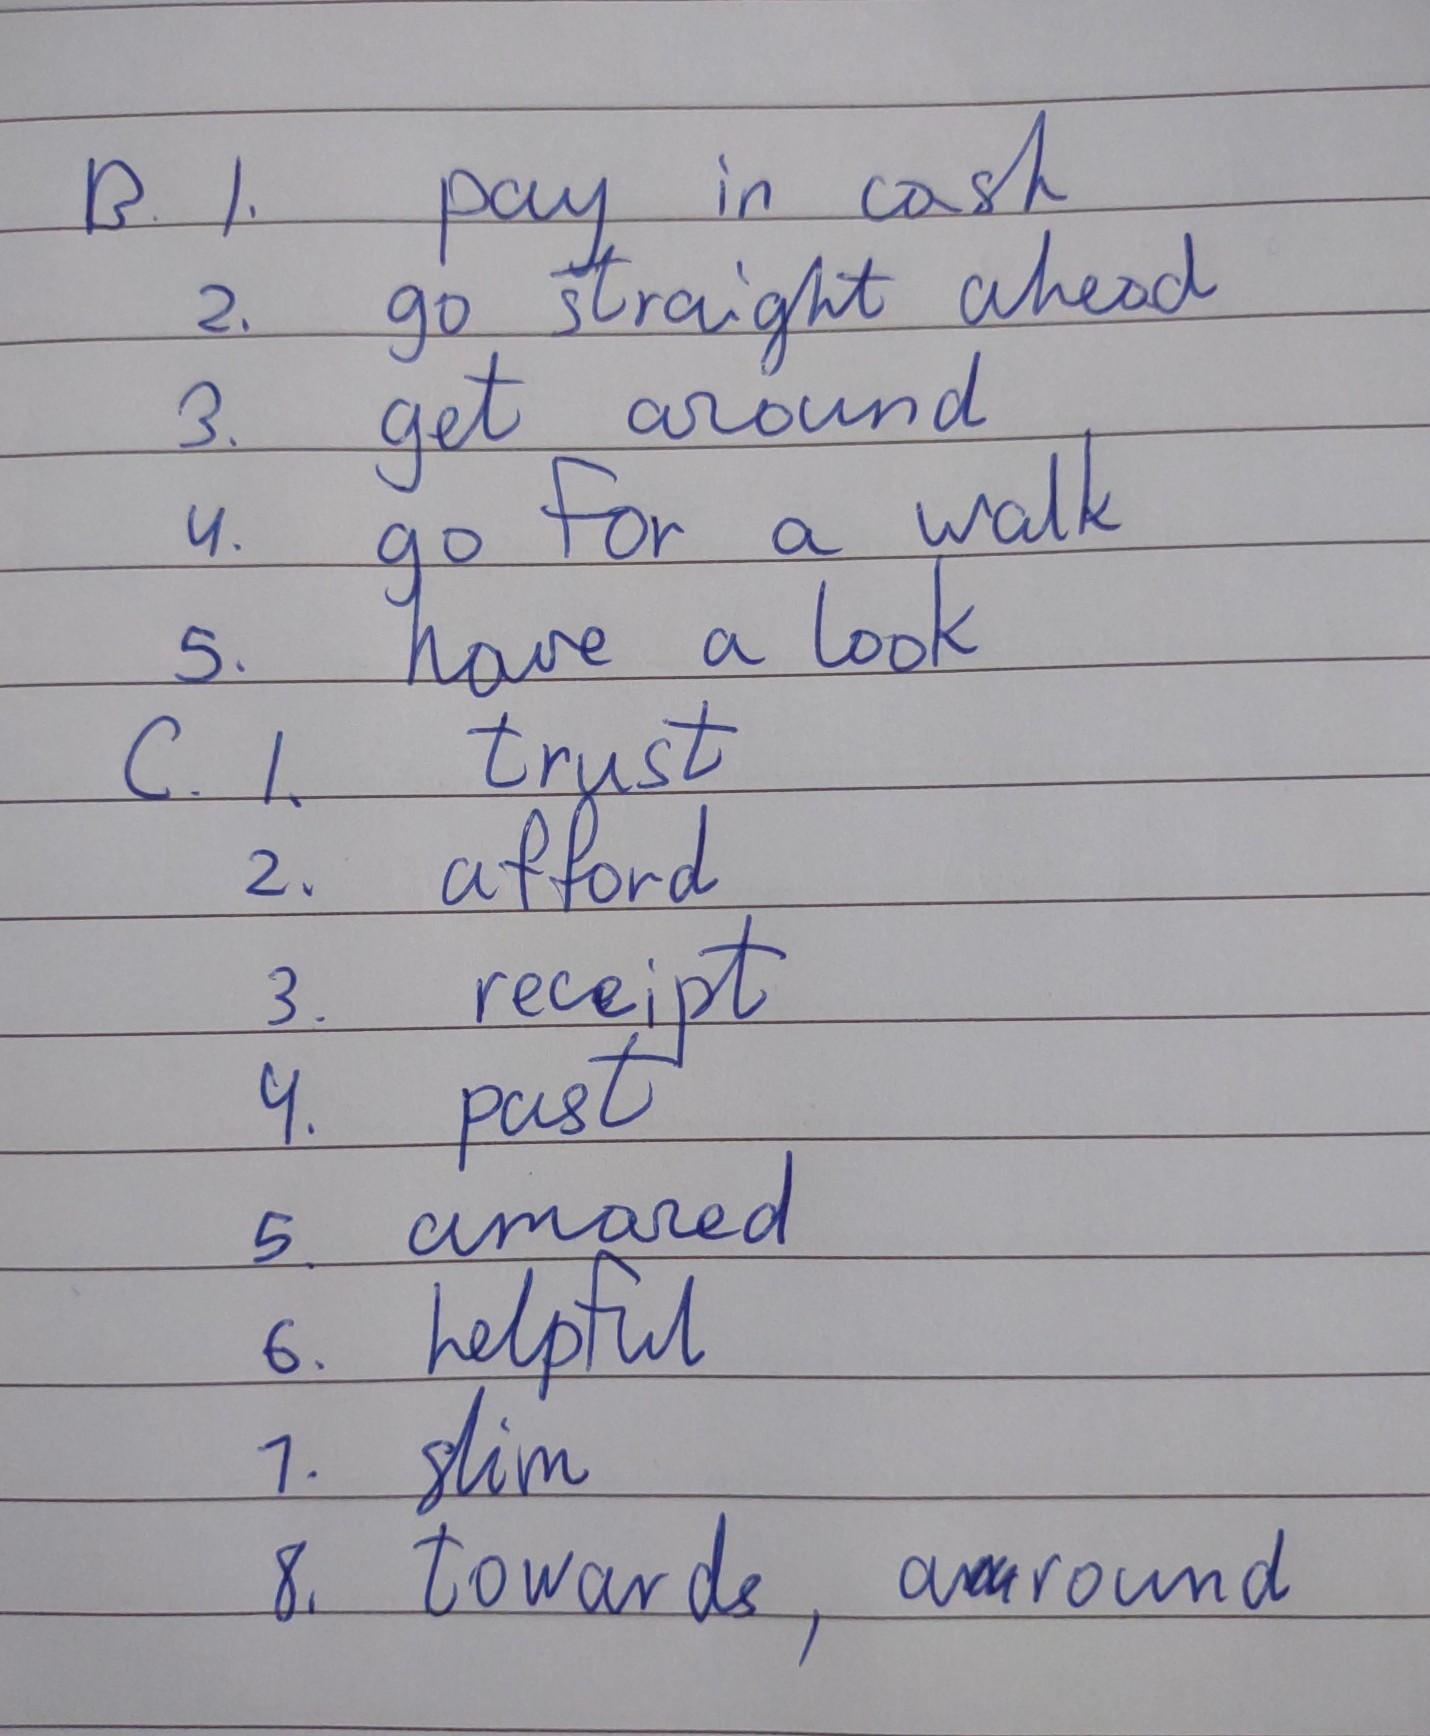 B. 1. pay in cash
2. go straight ahead
3. get around
4. go for a walk
5. have a look
C. 1. trust
2. afford
3. receipt
4. past
5. amazed
6. helpful
7. slim
8. towards, around